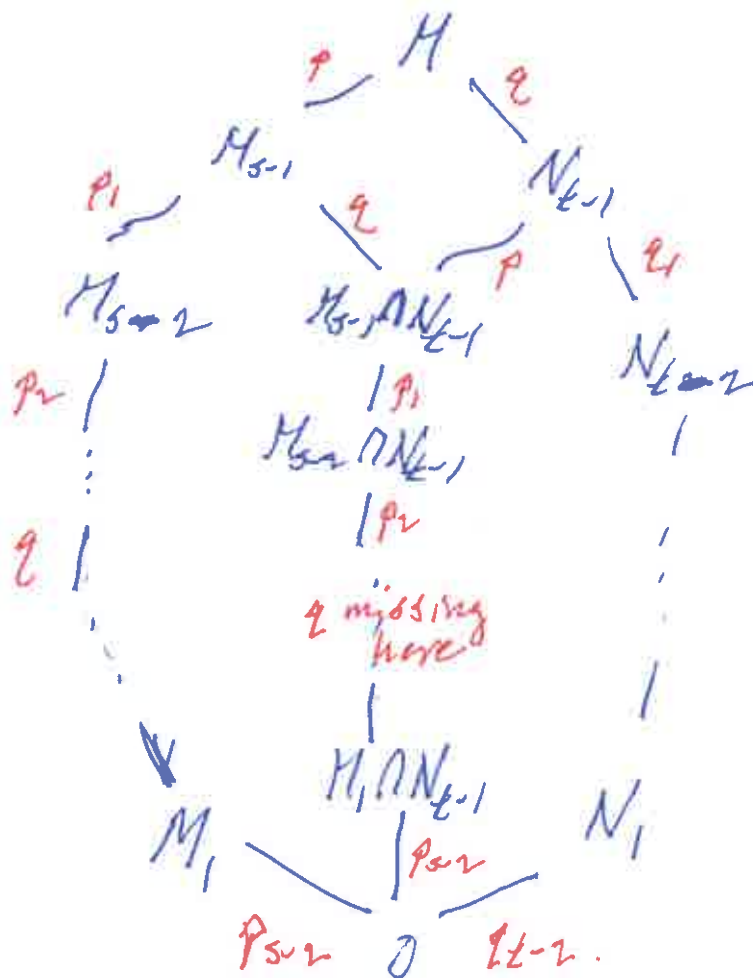 M
p q
M_{s-1} N_{t-1}
p_1 q p q_1
M_{s-2} M_{s-1}∩N_{t-1} N_{t-2}
p_2 p_1
M_{s-2}∩N_{t-1}
p_2
q
q missing
here
M_1 M_1∩N_{t-1} N_1
p_{s-2}
p_{s-2} 0 q_{t-2}.